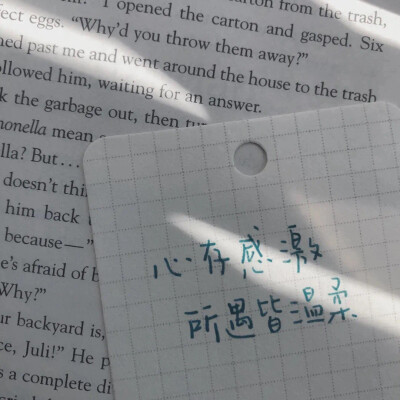 I opened the carton and gasped. Six
ect eggs. "Why'd you throw them away?"
ned past me and went around the house to the trash
ollowed him, waiting for an answer.
k the garbage out, then
monella mean
lla? But . . .
doesn't thi
him back
because—"
e's afraid of
Why?"
ur backyard is,
ce, Juli!" He p
s a complete di
心存感激
所遇皆温柔